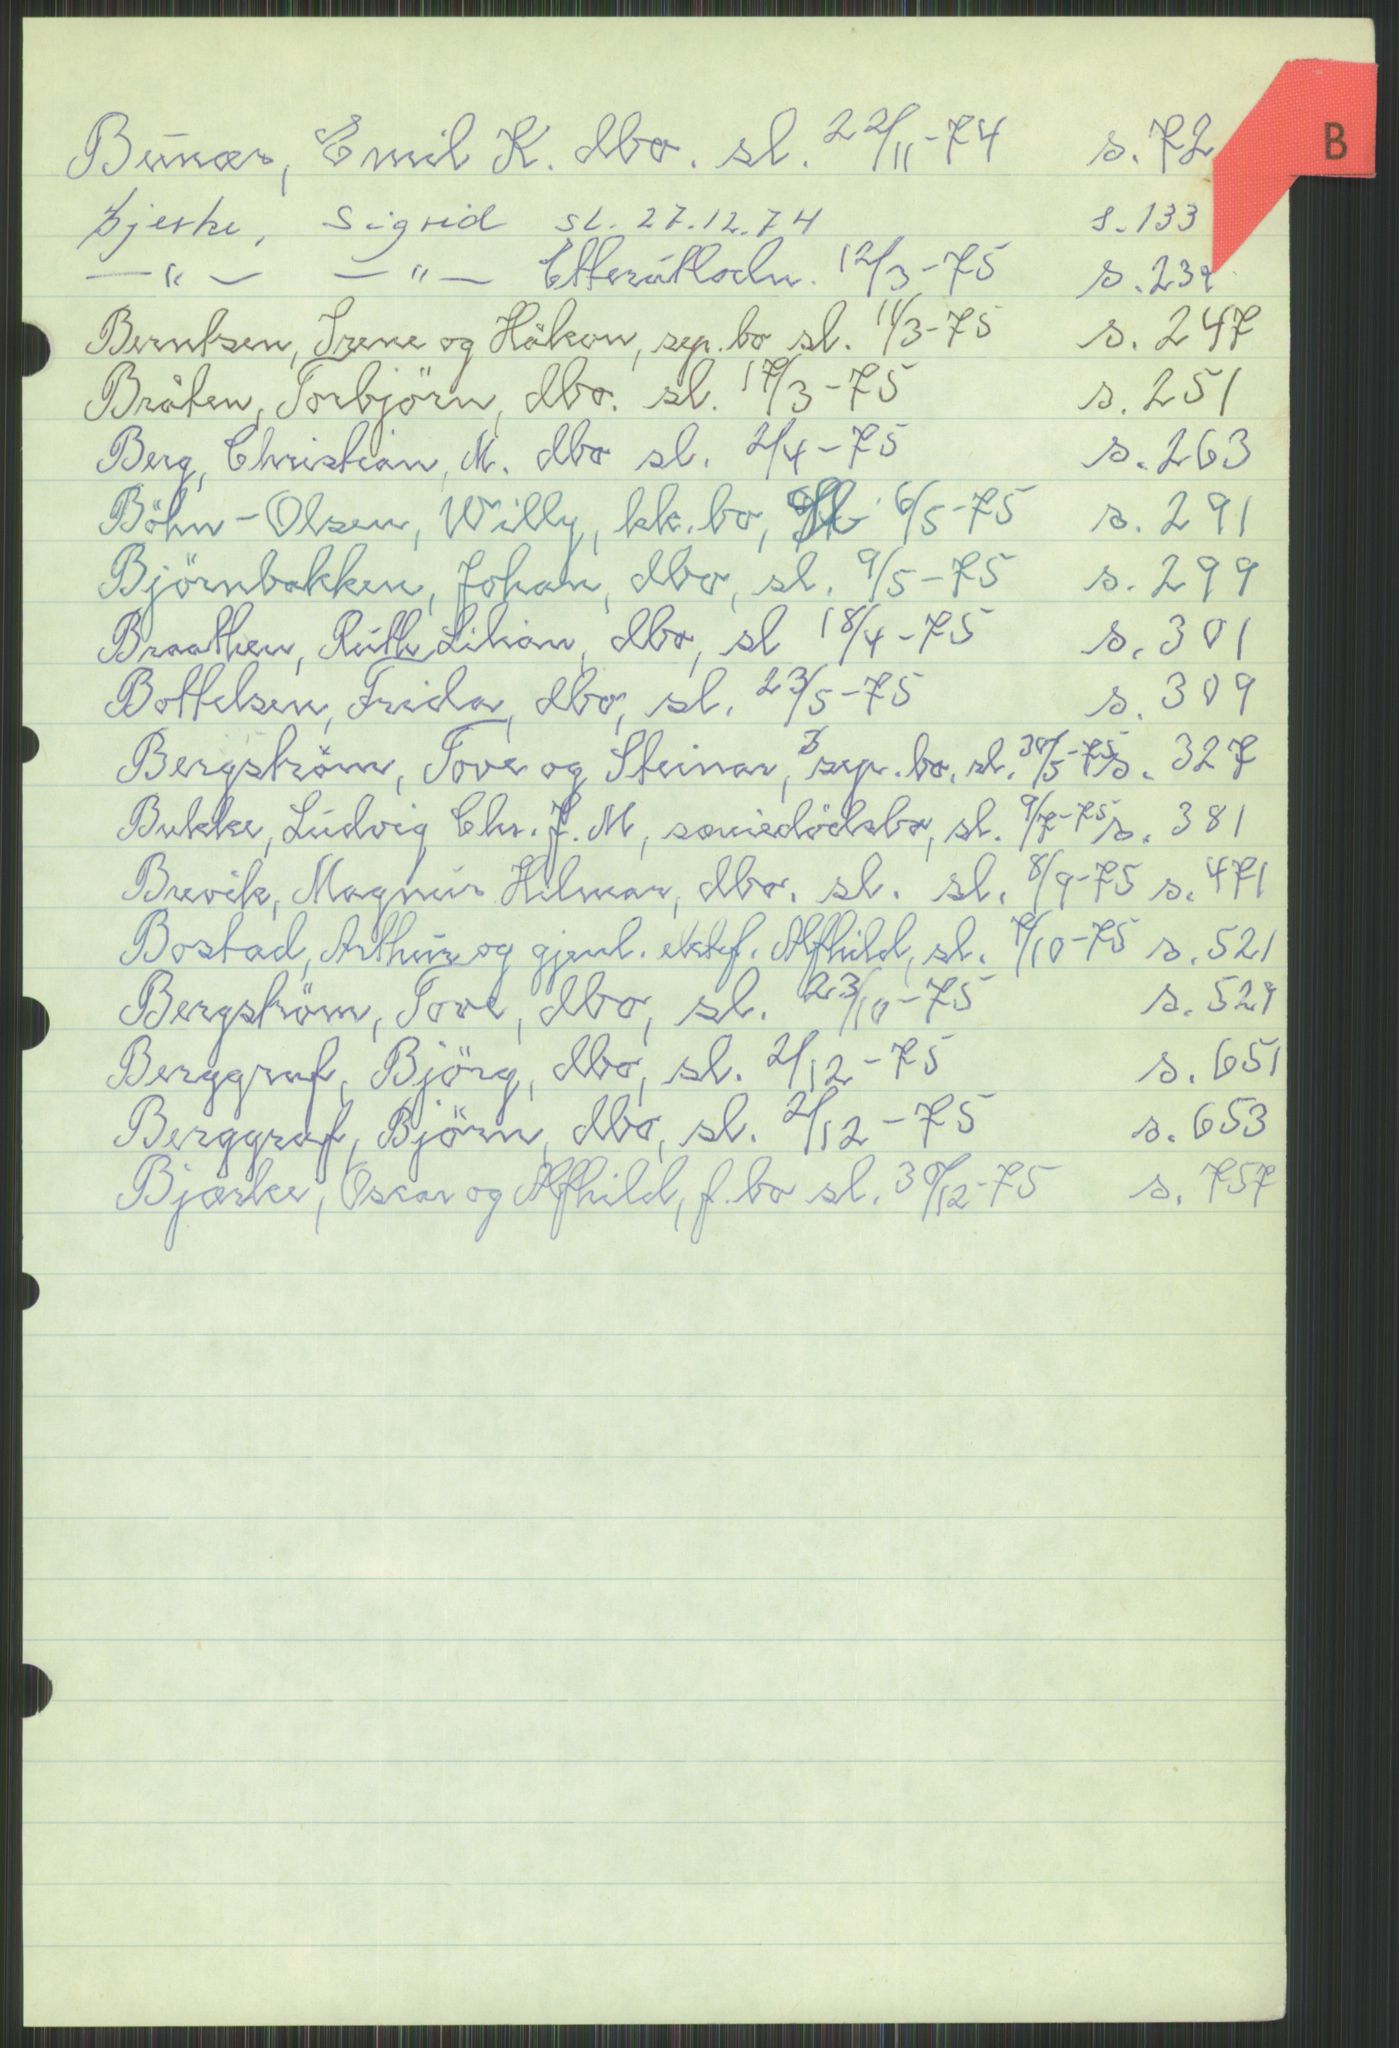 B
Bunær, Emil K. dbo. sl. 22/11-74 s. 72
Bjerke, Sigrid sl. 27.12.74 s. 133
— " — — " — Etterutlodn. 12/3-75 s. 239
Berntsen, Irene og Håkon, sep. bo sl. 11/3-75 s. 247
Bråten, Torbjörn, dbo. sl. 17/3-75 s. 251
Berg, Christian, M. dbo sl. 2/4-75 s. 263
Böhn-Olsen, Willy, kk. bo, 6/5-75 s. 291
Björnbakken, Johan, dbo, sl. 9/5-75 s. 299
Braathen, Ruth Lilian, dbo, sl 18/4-75 s. 301
Bottelsen, Frida, dbo, sl. 23/5-75 s. 309
Bergström, Tove og Steinar, sep. bo. sl. 30/5-75 s. 327
Bukke, Ludvig Chr. J. M, samiedödsbo, sl. 9/7-75 s. 381
Brevik, Magnus Hilmar, dbo. sl. sl. 8/9-75 s. 471
Bostad, Arthur og gjenl. ektef. Alfhild, sl. 7/10-75 s. 521
Bergström, Tove, dbo, sl. 23/10-75 s. 529
Berggraf, Björg, dbo, sl. 2/12-75 s. 651
Berggraf, Björn, dbo, sl. 2/12-75 s. 653
Bjærke, Oscar og Alfhild, f. bo sl. 30/12-75 s. 757